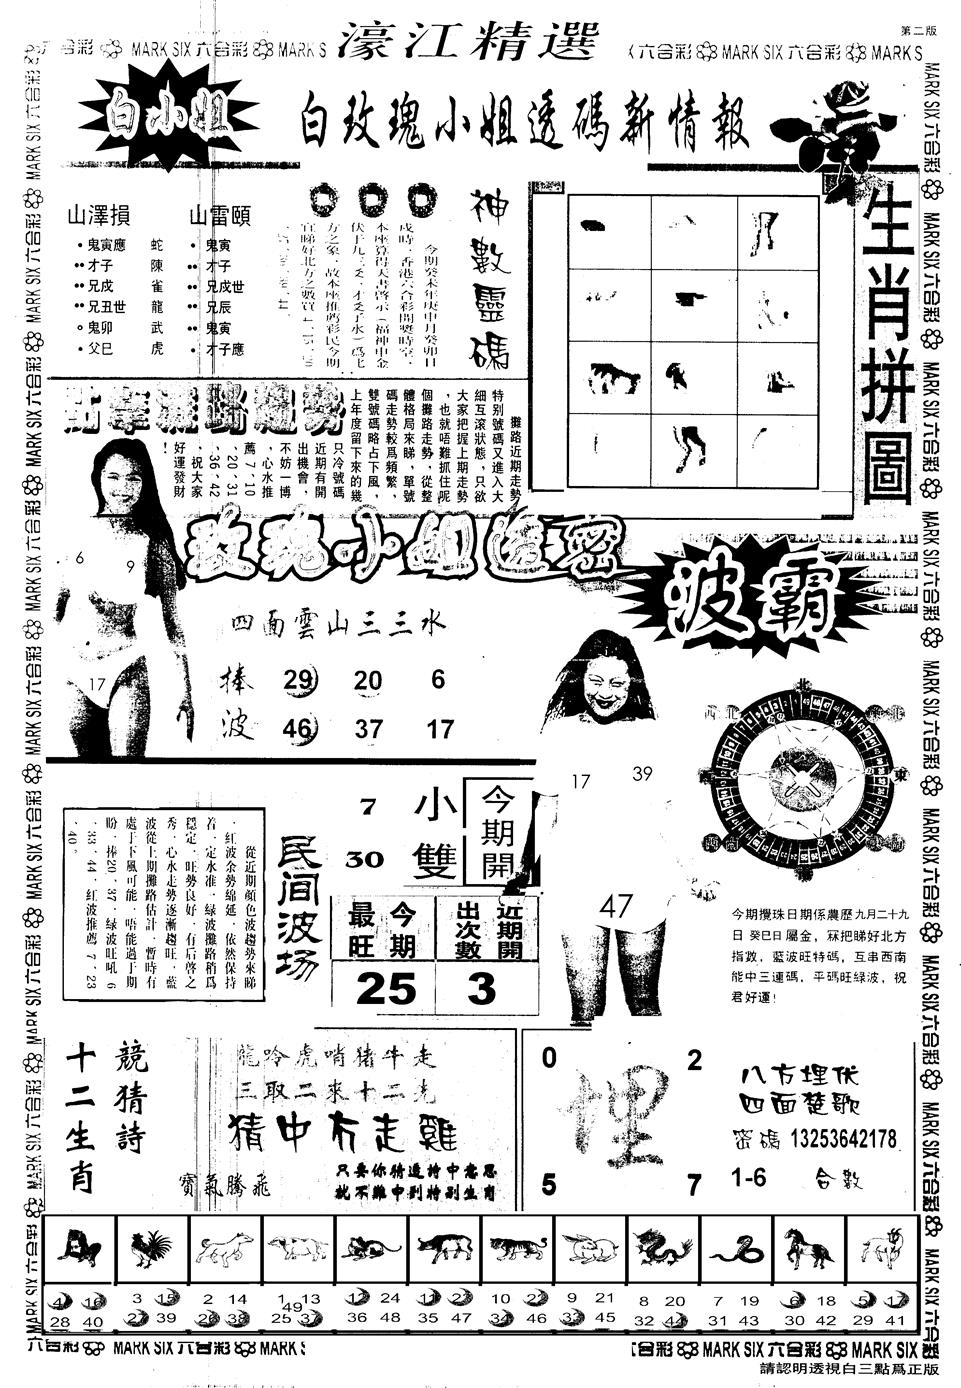 濠江精選
第二版
六合彩 MARK SIX 六合彩 MARK S
六合彩 MARK SIX 六合彩 MARK S
白小姐
白玫瑰小姐透碼新情報
山澤損
山雷頤
鬼寅應 蛇
才子 陳
兄戌 雀
兄丑世 龍
鬼卯 武
父巳 虎
鬼寅
才子
兄戌世
兄辰
鬼寅
才子應
神數靈碼
今期癸未年庚申月癸卯日
戌時，香港六合彩開獎時空，
本座算得天書啓示（福神申金
生肖拼圖
攤路近期走勢
特別號碼又進入大
細互滾狀態，只欲
大家把握上期走勢
，也就唔難抓住呢
個攤路走勢，從整
體格局來睇，單號
碼走勢較爲頻繁，
雙號碼略占下風，
上年度留下來的幾
只冷號碼
近期有開
出機會，
不妨一博
，心水推
薦7、10
、20、31
、36、42
，祝大家
好運發財
！
玫瑰小姐透密
6
9
17
四面雲山三三水
捧 29 20 6
波 46 37 17
波霸
17
39
47
北
東
今期攪珠日期係農歷九月二十九
日 癸巳日 屬金，冧把睇好北方
指數，藍波旺特碼，互串西南
能中三連碼，平碼旺綠波，祝
君好運！
從近期顔色波趨勢來睇
，紅波余勢綿延，依然保持
着一定水准，綠波攤路稍爲
穩定，旺勢良好，有后啓之
秀，心水走勢逐漸趨旺，藍
波從上期攤路估計，暫時有
處于下風可能，唔能過于期
盼，捧20、37，綠波旺吼6
、33、44，紅波推薦7、23
、40。
民间波场
7 小
30 雙
今期開
今期最旺
近期開出次數
25
3
競猜詩
十二生肖
龍吟虎哨猪牛走
三取二來十二先
猜中冇走雞
寶氣騰飛
只要你猜透詩中意思
就不難中到特別生肖
0
2
埋
5
7
八方埋伏
四面楚歌
密碼 13253642178
1-6 合數
4 16
28 40
3 15
27 39
2 14
26 38
1 13
49
25 37
12 24
36 48
11 23
35 47
10 22
34 46
9 21
33 45
8 20
32 44
7 19
31 43
6 18
30 42
5 17
29 41
六合彩 MARK SIX 六合彩 MARK S
六合彩 MARK SIX 六合彩 MARK SIX 六合彩
請認明透視白三點爲正版